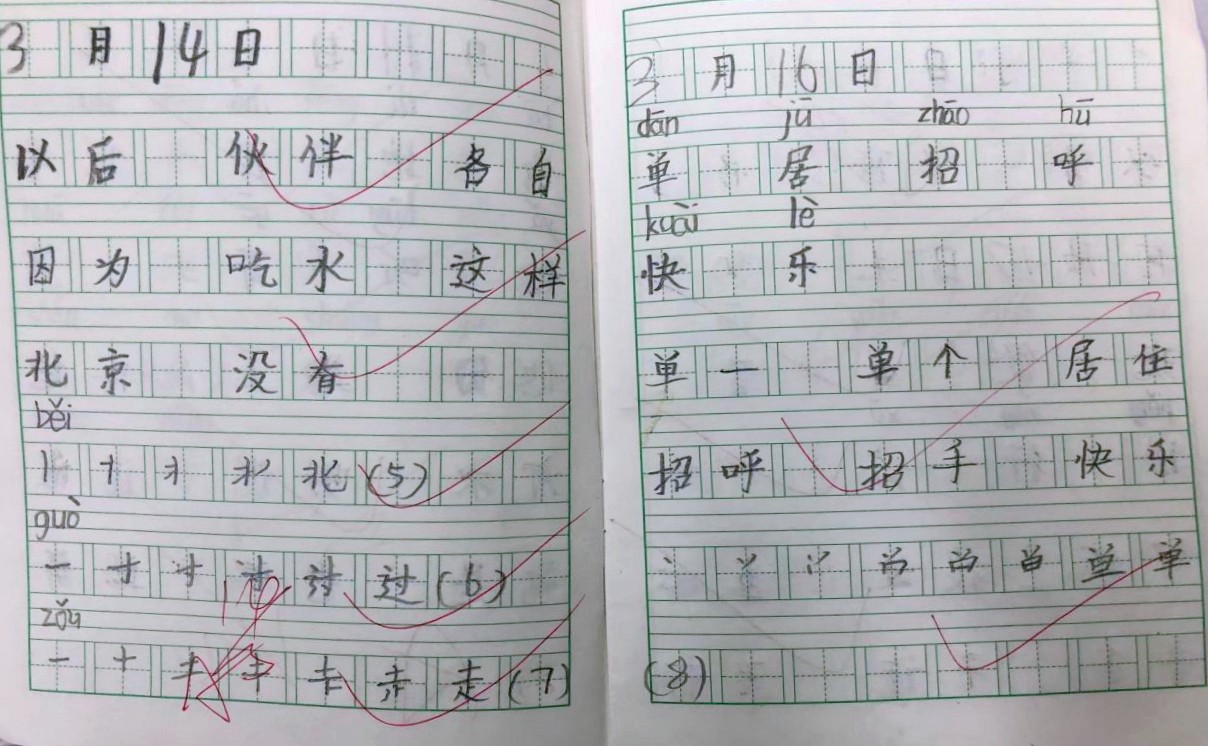 3月14日
以后 伙伴 各自
因为 吃水 这样
北京 没有
běi
北(5)
guò
一 十 寸 过(6)
zǒu
一 十 土 走(7)
3月16日
dān jū zhāo hū
单 居 招 呼
kuài lè
快 乐
单一 单个 居住
招呼 招手 快乐
丶 丷 单
(8)